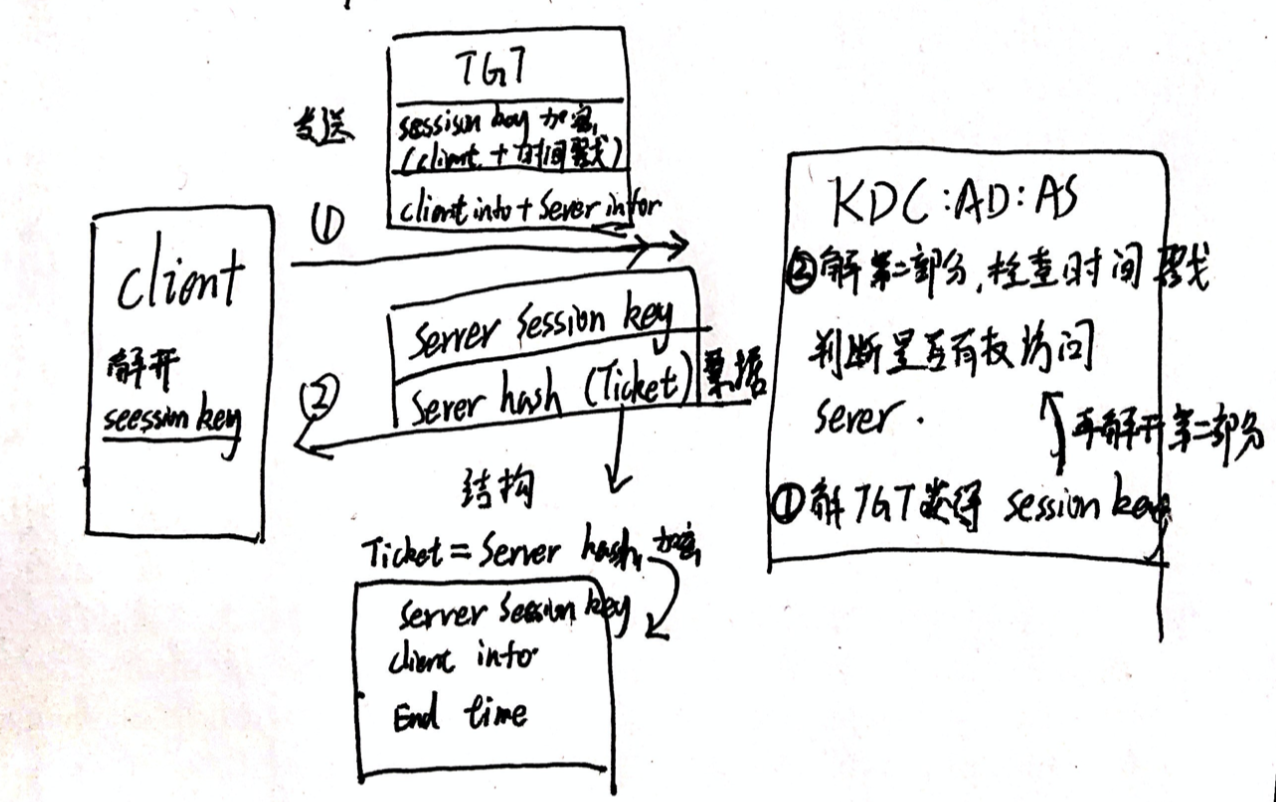 发送
TGT
session key 加密
(client + 时间戳)
client info + Sever infor
①
client
解开
seession key
Server Session key
Server hash (Ticket)
票据
②
结构
Ticket = Server hash 加密
Server Session key
client info
End time
KDC:AD:AS
②解第二部分,检查时间戳
判断是否有权访问
server.
再解开第二部分
①解TGT获得 session key